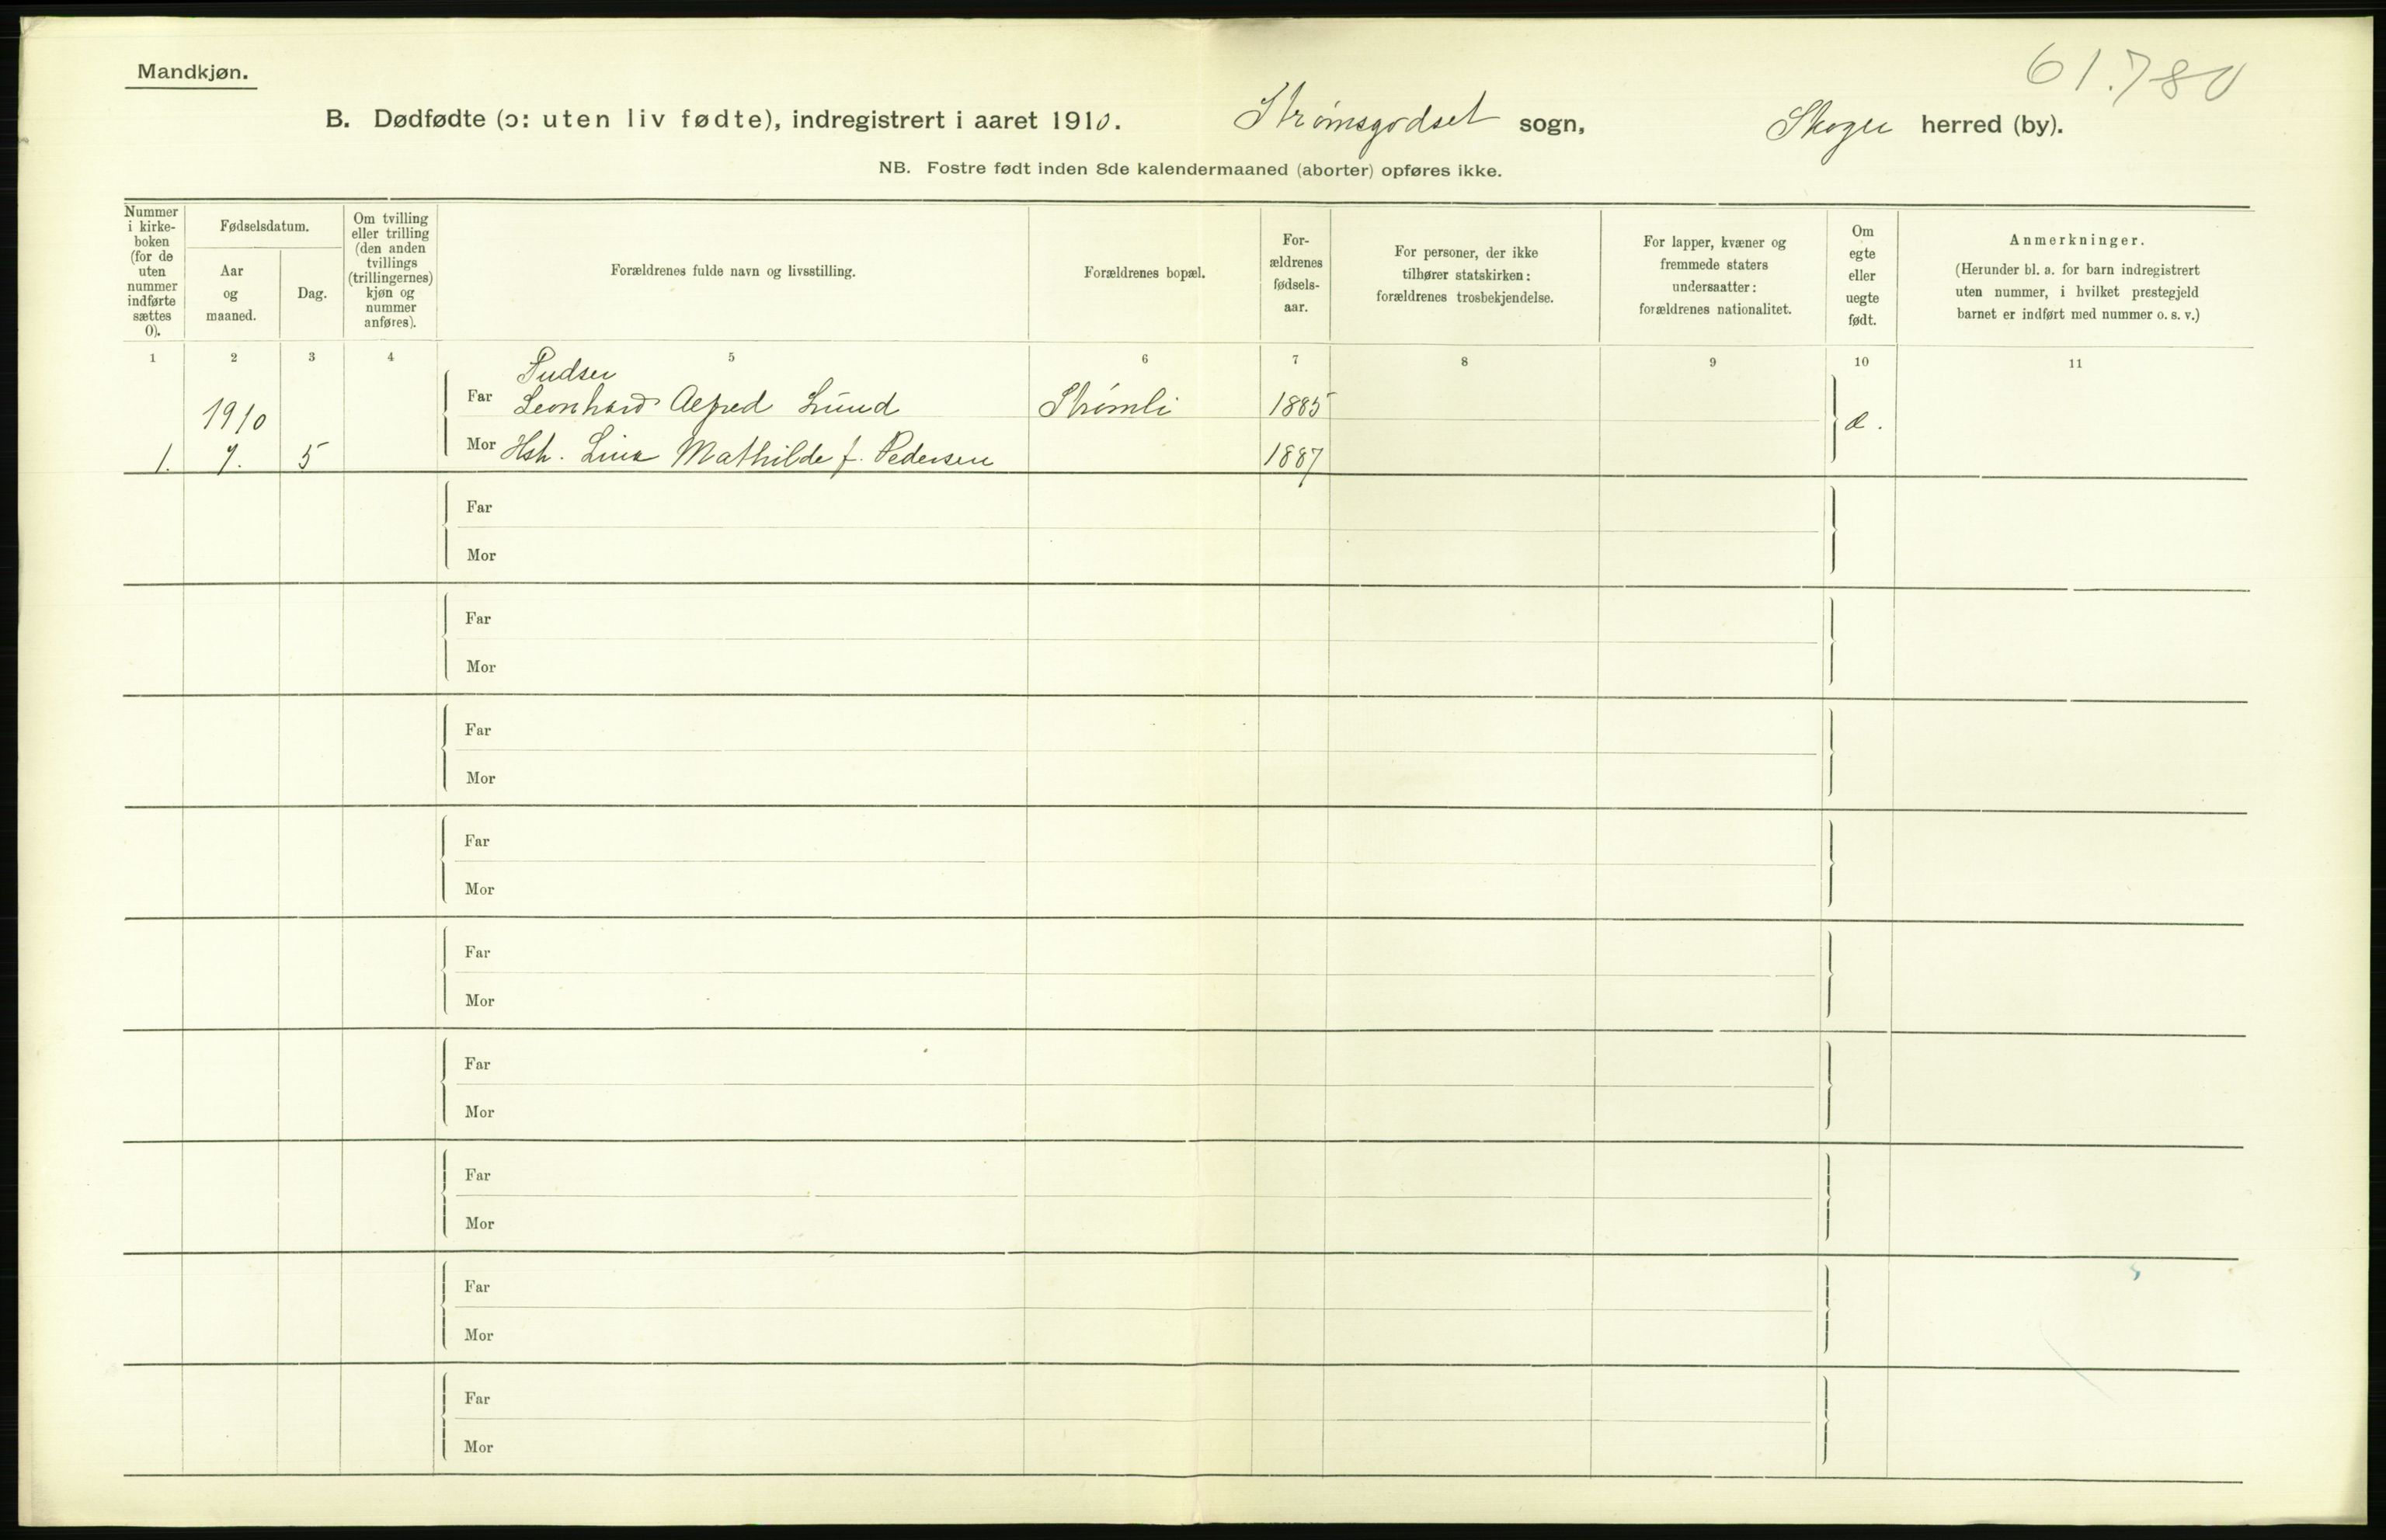 Mandkjøn.
61.780
B. Dødfødte (ɔ: uten liv fødte), indregistrert i aaret 1910. Strømsgodset sogn, Skoger herred (by).
NB. Fostre født inden 8de kalendermaaned (aborter) opføres ikke.
Nummer i kirke-boken (for de uten nummer indførte sættes 0).
Fødselsdatum.
Aar og maaned.
Dag.
Om tvilling eller trilling (den anden tvillings (trillingernes) kjøn og nummer anføres).
Forældrenes fulde navn og livsstilling.
Forældrenes bopæl.
For-ældrenes fødsels-aar.
For personer, der ikke tilhører statskirken: forældrenes trosbekjendelse.
For lapper, kvæner og fremmede staters undersaatter: forældrenes nationalitet.
Om egte eller uegte født.
Anmerkninger.
(Herunder bl. a. for barn indregistrert uten nummer, i hvilket prestegjeld barnet er indført med nummer o. s. v.)
1 2 3 4 5 6 7 8 9 10 11
Pudser
1910 Far Leonhard Alfred Lund Strømli 1885 æ.
1. 7. 5 Mor Hstr. Lina Mathilde f. Pedersen 1887
Far
Mor
Far
Mor
Far
Mor
Far
Mor
Far
Mor
Far
Mor
Far
Mor
Far
Mor
Far
Mor